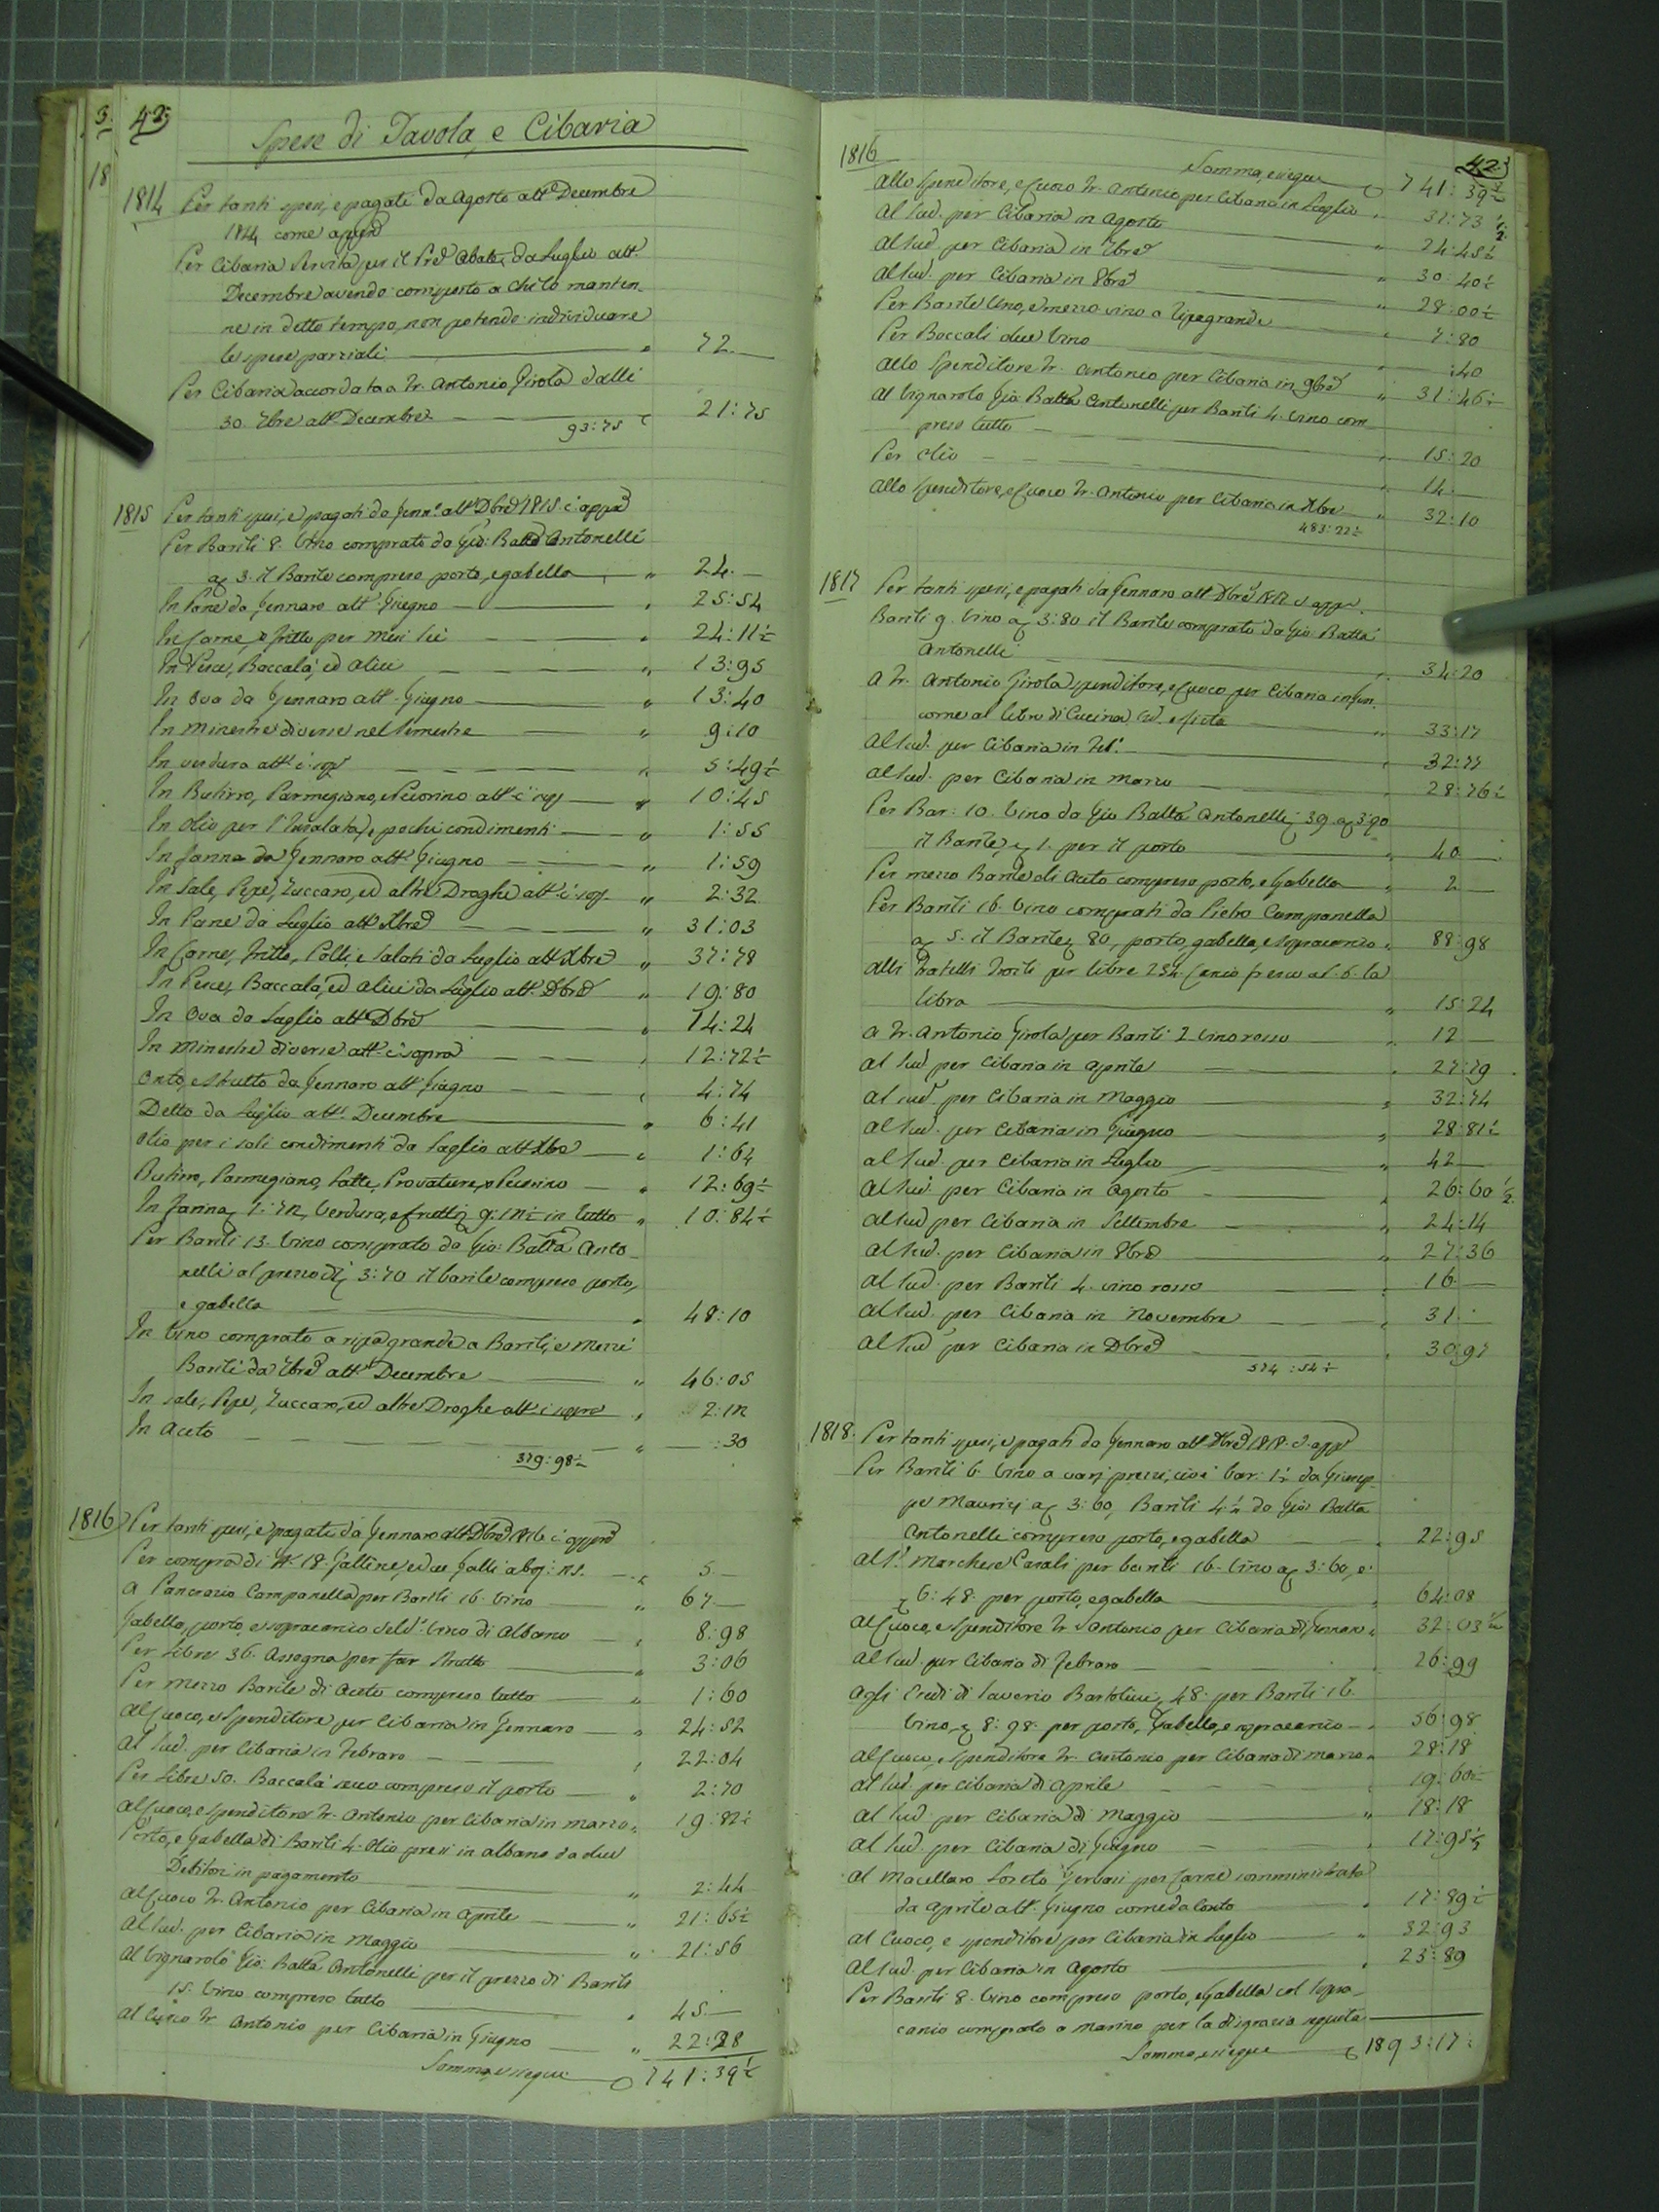 3.
42
18
Spese di Tavola, e Cibaria
1814 Per tanti spesi, e pagati da Agosto all Decembre
1814 come appd
Per Cibaria servita per il Pre Abate, da Luglio all.
Decembre avendo composto a chi lo manten-
ne in detto tempo, non potendo individuare
le spese parziali 72.—
Per Cibaria accordata a Fr. Antonio Girola dalli
30. 7bre all Decembre 21:75
93:75
1815 Per tanti spesi, e pagati da Jenn. all Dbre 1815. c. appd
Per Barili 8. Vino comprato da Gio: Batta Antonelli
a 3. il Barile compreso porto, e gabella 24.—
In Pane da Gennaro all Giugno 25:54
In Carne, e fritto per mesi sei 24:11½
In Pesce, Baccalà, ed alici 13:95
In Ova da Gennaro all Giugno 13:40
In minestre diverse nel semestre 9:10
In verdura all c. sop 5:49½
In Butirro, Parmegiano, e Pecorino all c. sop 10:45
In Olio per l'Insalata, e pochi condimenti 1:55
In farina da Gennaro all Giugno 1:59
In Sale, Pepe, Zuccaro, ed altre Droghe all c. sop. 2:32
In Pane da Luglio all Xbre 31:03
In Carne, fritto, Polli, e salati da Luglio all Xbre 37:78
In Pesce, Baccalà, ed alici da Luglio all. Dbre 19:80
In Ova da Luglio all Dbre 14:24
In Minestre diverse all c. sopra 12:72½
Onto, e strutto da Gennaro all Giugno 4:74
Detto da Luglio all. Decembre 6:41
Olio per i soli condimenti da Luglio all Xbre 1:64
Butirro, Parmegiano, Latte, Provature, e Pecorino 12:69½
In farina 1:72, Verdura, e frutti 9:12½ in tutto 10:84½
Per Barili 13. Vino comprato da Gio: Batta Anto-
nelli al prezzo di 3:70 il barile compreso porto,
e gabella 48:10
In Vino comprato a ripa grande a Barili, e Mezzi
Barili da 7bre all Decembre 46:05
In sale, Pepe, Zuccaro, ed altre Droghe all c. sopra 2:12
In Aceto :30
379:98½
1816 Per tanti spesi, e pagati da Gennaro all Dbre 1816 c. appd
Per compra di N. 18. Galline, ed due Galli a boj: 25. 5.—
A Pancrazio Campanella per Barili 16. Vino 67.—
Gabella, porto, e sopracarico del d. Vino di Albano 8:98
Per Libre 36. Assogna per far strutto 3:06
Per mezzo Barile di aceto compreso tutto 1:60
Al Cuoco, e Spenditore per Cibaria in Gennaro 24:52
Al Sud. per Cibaria in Febraro 22:04
Per Libre 50. Baccalà secco compreso il porto 2:70
Al Cuoco, e Spenditore Fr. Antonio per Cibaria in Marzo 19:82½
Porto, e Gabella di Barili 4. Olio presi in Albano da due
Debitori in pagamento 2:44
Al Cuoco Fr. Antonio per Cibaria in Aprile 21:65½
Al Sud. per Cibaria in Maggio 21:56
Al Vignarolo Gio: Batta Antonelli per il prezzo di Barili
15. Vino compreso tutto 45.—
Al Cuoco Fr Antonio per Cibaria in Giugno 22:28
Somma, e segue 741:39½
42
1816 Somma, e segue 741:39½
Allo Spenditore, e Cuoco Fr. Antonio per Cibaria in Luglio 32:73½
Al Sud. per Cibaria in Agosto 24:45½
Al Sud. per Cibaria in 7bre 30:40½
Al Sud. per Cibaria in 8bre 28:00½
Per Barile Uno, e mezzo vino a Ripagrande 7:80
Per Boccali due Vino :40
Allo Spenditore Fr. Antonio per Cibaria in 9bre 31:46½
Al Vignarolo Gio: Batta Antonelli per Barili 4. Vino com-
preso tutto 15:20
Per Olio 14.
Allo Spenditore, e Cuoco Fr. Antonio per Cibaria in Xbre 32:10
483:22½
1817 Per tanti spesi, e pagati da Gennaro all Dbre 1817 c. app.
Barili 9. Vino a 3:80 il Barile comprato da Gio: Batta
Antonelli 34:20
A Fr. Antonio Girola spenditore, e Cuoco per Cibaria in Gen.
come al libro di Cucina 33:17
Al Sud. per Cibaria in Feb. 32:77
Al Sud. per Cibaria in Marzo 28:76½
Per Bar: 10. Vino da Gio Batta Antonelli 39. a 3:90
il Barile, e 1. per il porto 40.—
Per mezzo Barile di Aceto compreso porto, e Gabella 2.—
Per Barili 16. Vino comprati da Pietro Campanella
a 5. il Barile 80, porto, gabella, e sopracarico 88:98
Alli Fratelli Troili per libre 254. Cacio fresco al 6. la
libra 15:24
A Fr. Antonio Girola per Barili 2 Vino rosso 12.—
Al Sud. per Cibaria in Aprile 27:79
Al Sud. per Cibaria in Maggio 32:74
Al Sud. per Cibaria in Giugno 28:81½
Al Sud. per Cibaria in Luglio 42.—
Al Sud. per Cibaria in Agosto 26:60½
Al Sud per Cibaria in Settembre 24:14
Al Sud. per Cibaria in 8bre 27:36
Al Sud. per Barili 4. vino rosso 16.—
Al Sud. per Cibaria in Novembre 31.
Al Sud. per Cibaria in Dbre 30:97
574:54½
1818. Per tanti spesi, e pagati da Gennaro all Dbre 1818. c. appd
Per Barili 6. Vino a varj prezzi, cioè bar: 1½ da Giusep-
pe Maurizj a 3:60, Barili 4½ da Gio: Batta
Antonelli compreso porto, e gabella 22:95
Al S. Marchese Casali per barili 16. Vino a 3:60, e
6:48. per porto, e gabella 64:08
Al Cuoco, e Spenditore Fr Antonio per Cibaria di Gennaro 32:03½
Al Sud. per Cibaria di Febraro 26:99
Agli Eredi di Saverio Bartolini 48. per Barili 16.
Vino, e 8:98. per porto, Gabella, e sopracarico 56:98
Al Cuoco, e Spenditore Fr. Antonio per Cibaria di Marzo 28:18
Al Sud. per Cibaria di Aprile 19:60½
Al Sud. per Cibaria di Maggio 18:18
Al Sud. per Cibaria di Giugno 17:95½
Al Macellaro Loreto per Carne somministrata
da Aprile all. Giugno come da Conto 17:89½
Al Cuoco, e spenditore per Cibaria in Luglio 32:93
Al Sud. per Cibaria in Agosto 23:89
Per Barili 8. Vino compreso porto, e Gabella col sopra-
carico comprato a Marino per la disgrazia
Somma, e segue 1893:17